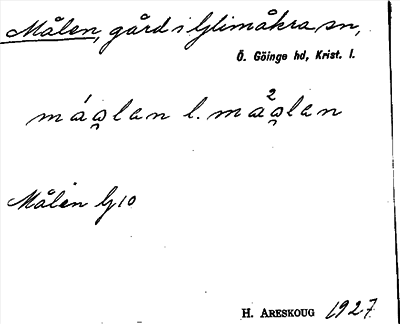 Målen, gård i Glimåkra sn,
Ö. Göinge hd, Krist. l.
máa̯lan l. màa̯lan
Målen G10
H. ARESKOUG 1927